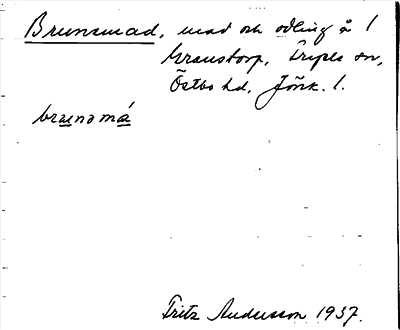 Brunsmad, mad och odling å 1
Granstorp, Tripla sn,
Östbo hd, Jönk. l.
brunəmá
Fritz Andersson 1937.